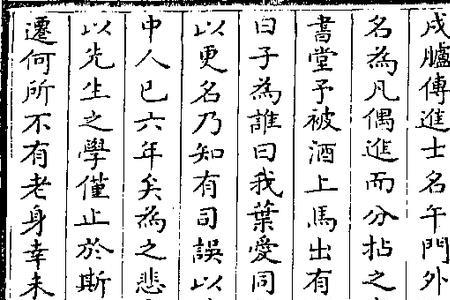 戌臚傳進士名午門外
名為凡偶進而分拈之
書堂予被酒上馬出有
曰子為誰曰我葉愛同
以更名乃知有司誤以
中人已六年矣為之悲
以先生之學僅止於斯
遷何所不有老身幸未